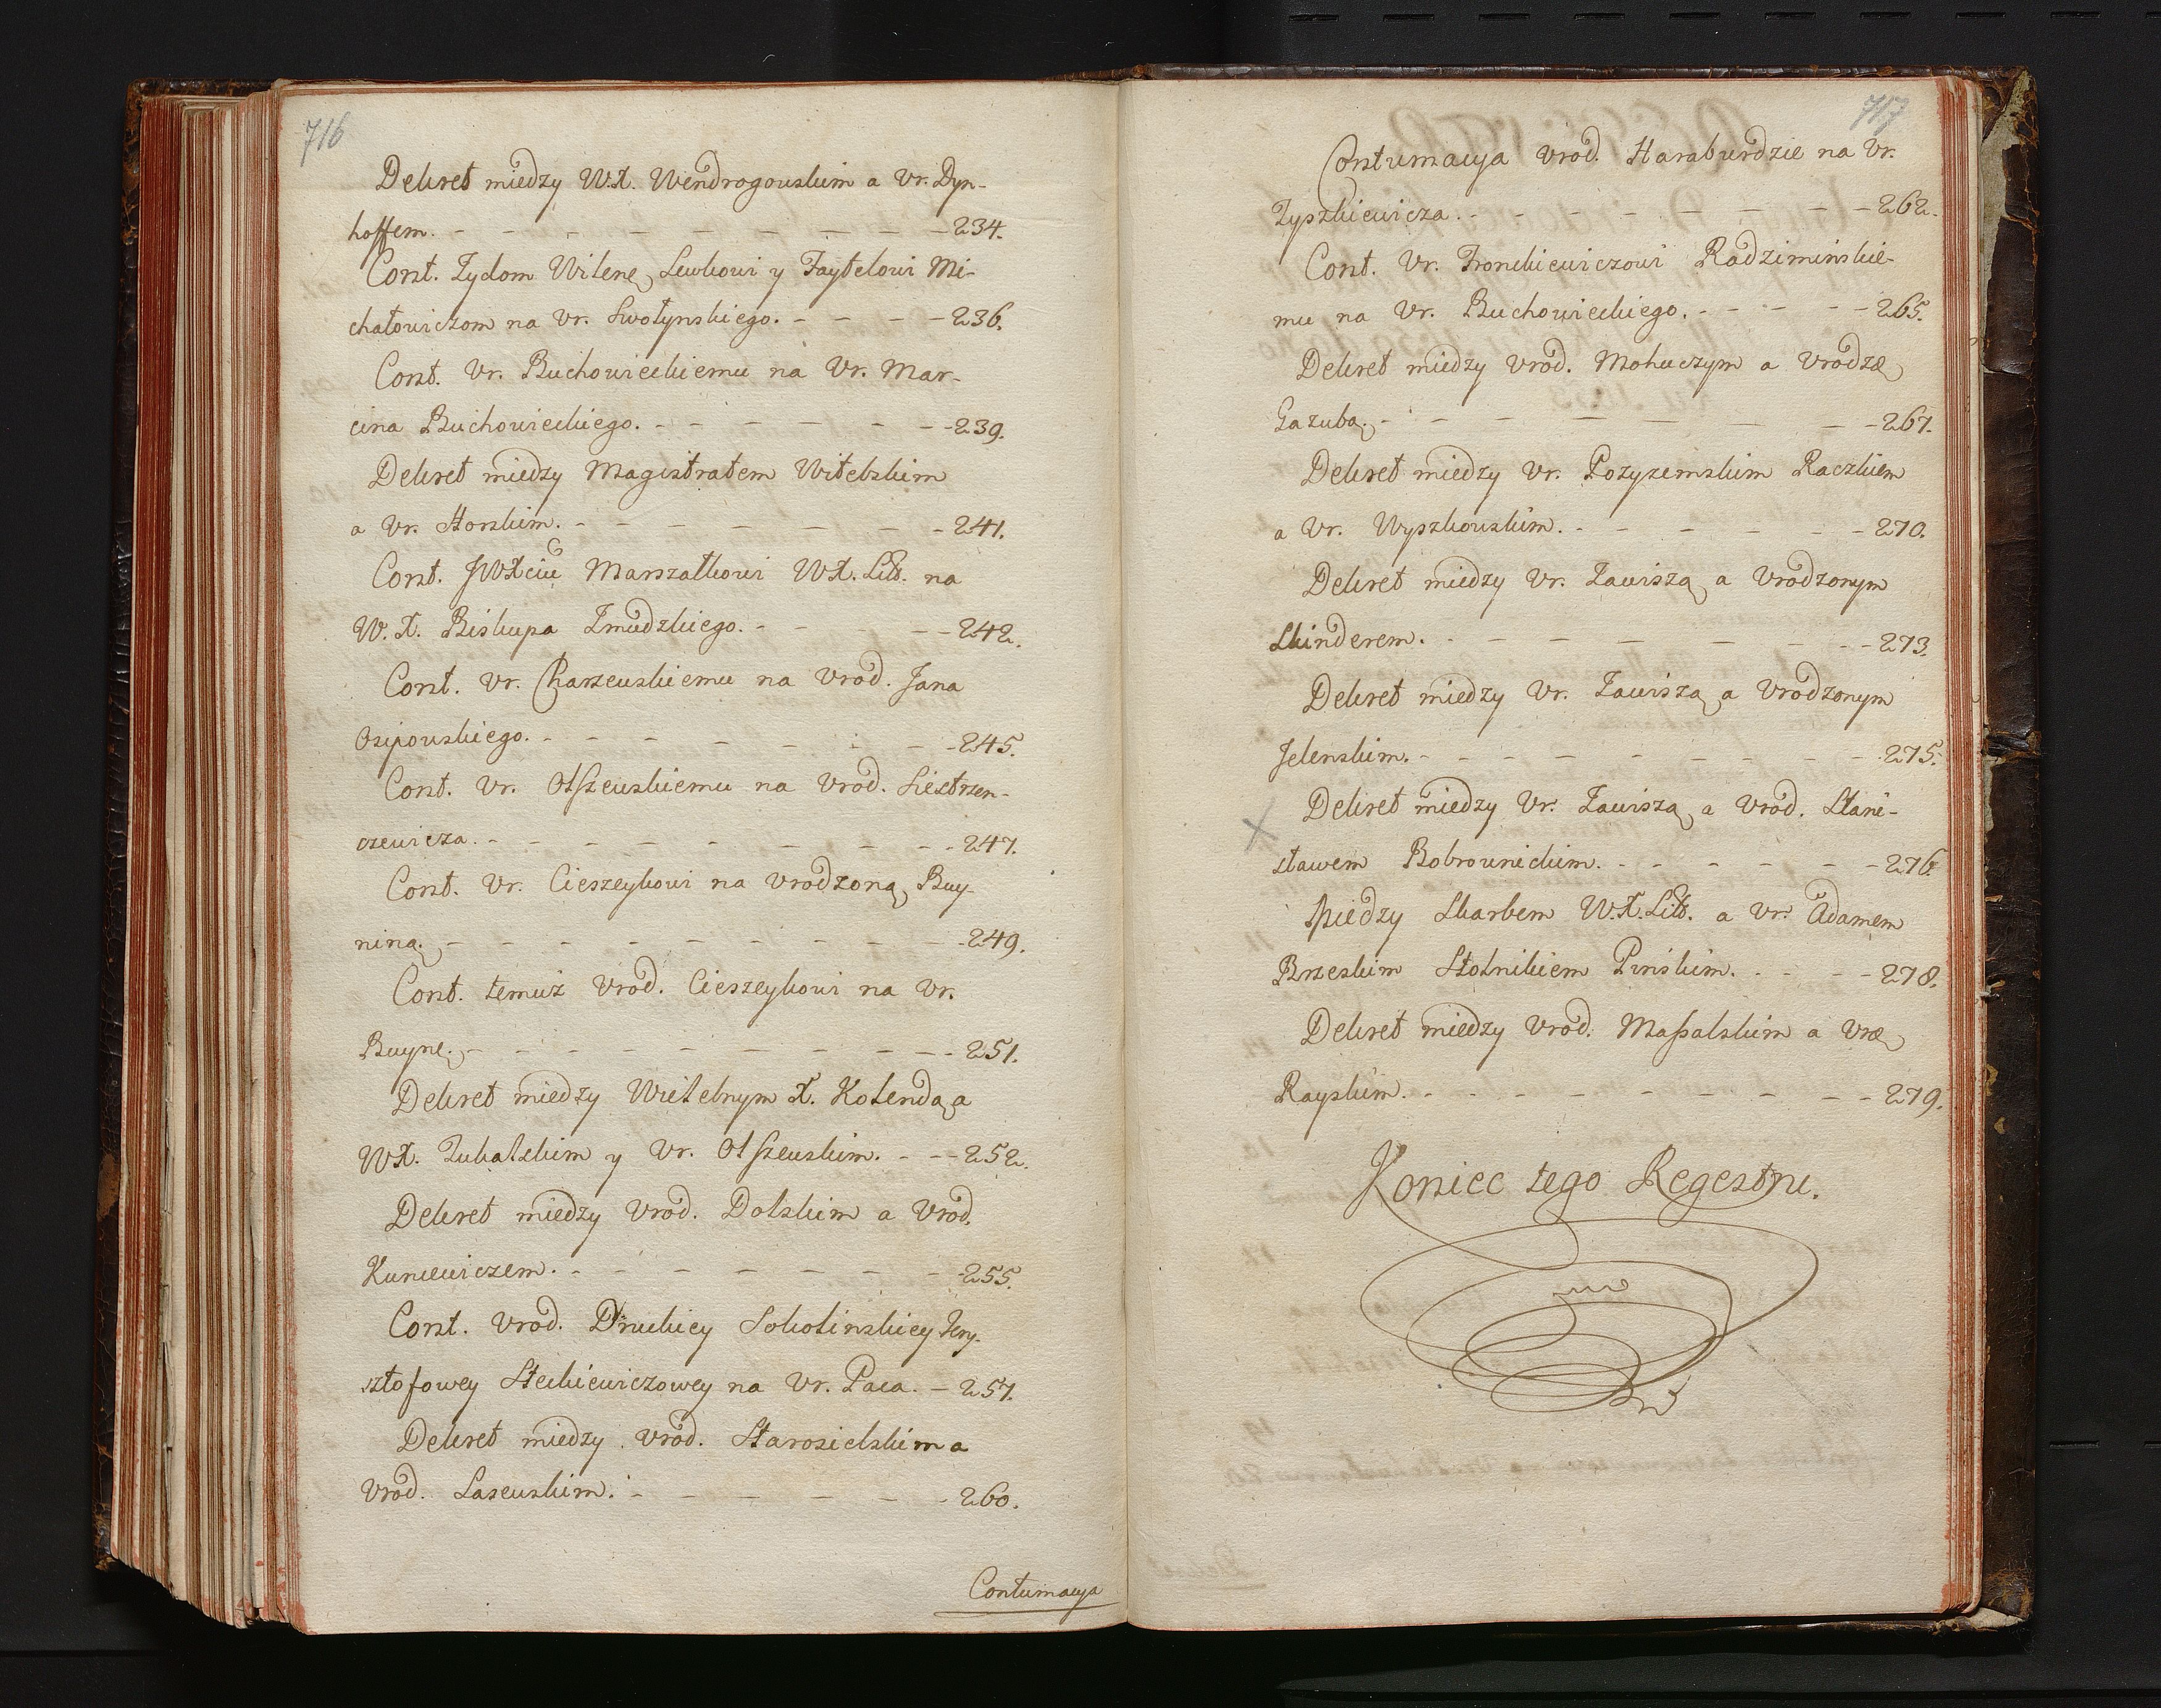 716
Dekret miedzy W.X. Wendrogowskim a Vr. Dyn-
hoffem. - - - - - - - - 234.
Cont. Zydom Wilenę Lewkowi y Faytelowi Mi-
chałowiczom na Vr. Swołynskiego. - - - - 236.
Cont. Vr. Buchowieckiemu na Vr. Mar-
cina Buchowieckiego. - - - - - - 239.
Dekret miedzy Magistratem Witebskim
a Vr. Horskim. - - - - - - - 241.
Cont. JWXciu Marszałkowi WX. Litt. na
W. X. Biskupa Zmudzkiego. - - - - 242.
Cont. Vr. Charzewskiemu na Vrod. Jana
Osipowskiego. - - - - - - - 245.
Cont. Vr. Olszewskiemu na Vrod. Siestrzen-
cewicza. - - - - - - - - 247.
Cont. Vr. Cieszeykowi na Vrodzoną Buy-
niną. - - - - - - - - 249.
Cont. temuż Vrod. Cieszeykowi na Vr.
Buynę. - - - - - - - - 251.
Dekret miedzy Wielebnym X. Kolendą a
WX. Zubalskim y Vr. Olszewskim. - - 252.
Dekret miedzy Vrod. Dolskim a Vrod.
Kuncewiczem. - - - - - - - 255.
Cont. Vrod. Druckiey Sokolinskiey
sztofowey Steckiewiczowey na Vr. Paca. - 257.
Dekret miedzy Vrod. Starosielskim a
Vrod. Lasewskim. - - - - - - 260.
Contumacya
717
Contumacya Vrod. Haraburdzie na Vr.
Zyszkiewicza. - - - - - - - 262.
Cont. Vr. Fronckiewiczowi Radziminskie-
mu na Vr. Buchowieckiego. - - - - 265.
Dekret miedzy Vrod. Mohuczym a Vrodzę
Gazubą. - - - - - - - 267.
Dekret miedzy Vr. Pozyzemskim Raczkiem
a Vr. Wyszkowskim. - - - - - - 270.
Dekret miedzy Vr. Zawiszą a Vrodzonym
Skinderem. - - - - - - - 273.
Dekret miedzy Vr. Zawiszą a Vrodzonym
Jelenskim. - - - - - - - - 275.
Dekret miedzy Vr. Zawiszą a Vrod. Stani-
sławem Bobrownickim. - - - - - 276.
Miedzy Skarbem W.X. Litt. a Vr. Adamem
Brzeskim Stolnikiem Pinskim. - - - - 278.
Dekret miedzy Vrod. Massalskim a Vrę
Rayskim. - - - - - - - 279.
Koniec tego Regestru.